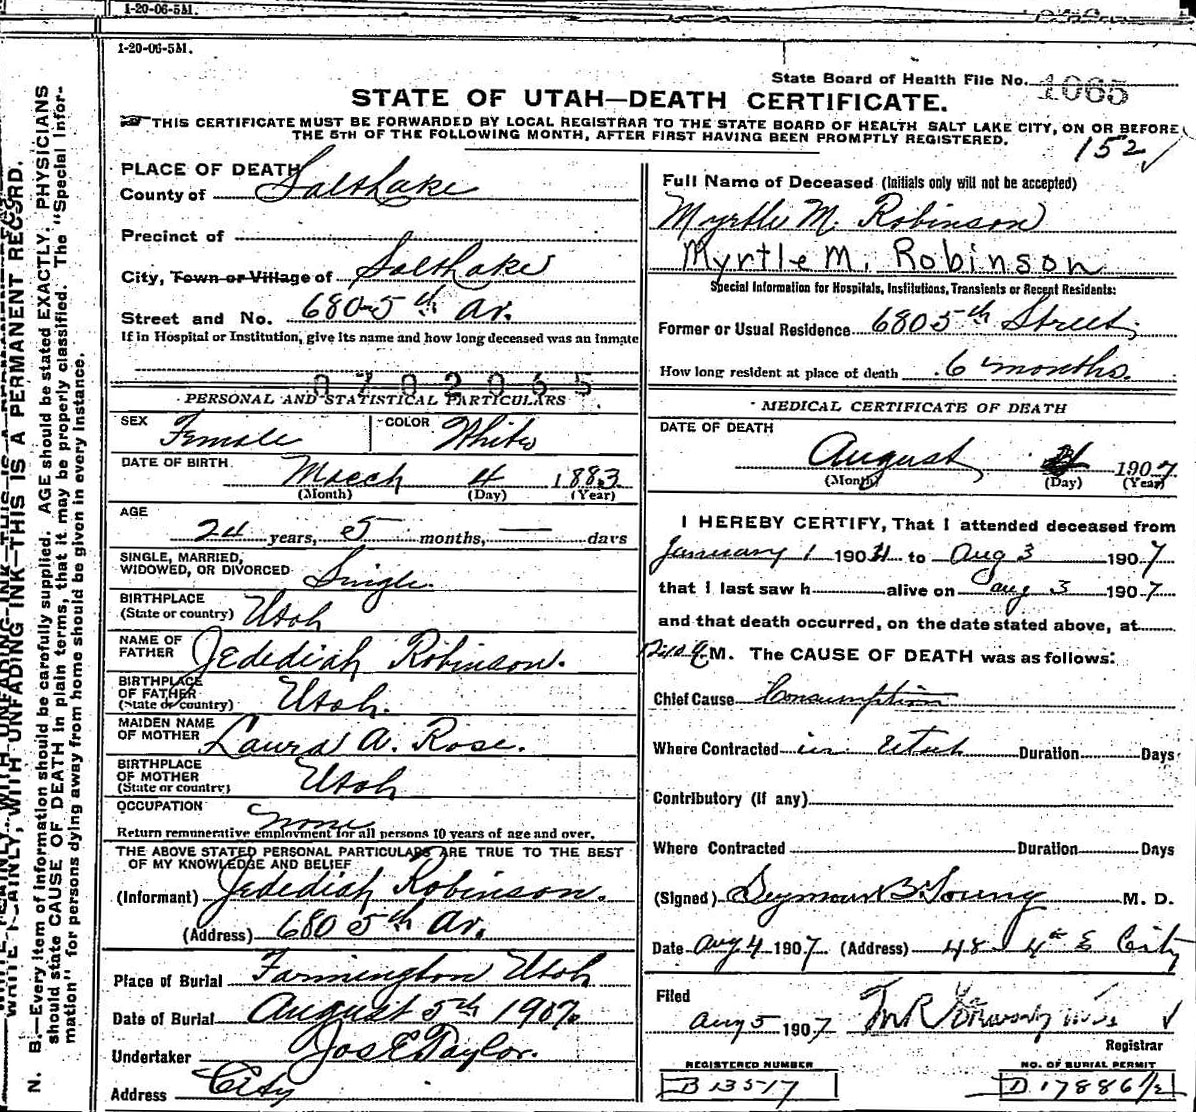 1-20-06-5M.
1-20-06-5M.
State Board of Health File No. 1065
STATE OF UTAH—DEATH CERTIFICATE.
THIS CERTIFICATE MUST BE FORWARDED BY LOCAL REGISTRAR TO THE STATE BOARD OF HEALTH SALT LAKE CITY, ON OR BEFORE
THE 5TH OF THE FOLLOWING MONTH, AFTER FIRST HAVING BEEN PROMPTLY REGISTERED.
152 ✓
PLACE OF DEATH
County of Salt Lake
Precinct of
City, Town or Village of Salt Lake
Street and No. 680-5th Av.
If in Hospital or Institution, give its name and how long deceased was an inmate
0702065
PERSONAL AND STATISTICAL PARTICULARS
SEX Female COLOR White
DATE OF BIRTH March 4 1883
(Month) (Day) (Year)
AGE
24 years, 5 months, — days
SINGLE, MARRIED,
WIDOWED, OR DIVORCED Single.
BIRTHPLACE
(State or country) Utah
NAME OF
FATHER Jedediah Robinson.
BIRTHPLACE
OF FATHER
(State or country) Utah.
MAIDEN NAME
OF MOTHER Laura A. Rose.
BIRTHPLACE
OF MOTHER
(State or country) Utah
OCCUPATION none
Return remunerative employment for all persons 10 years of age and over.
THE ABOVE STATED PERSONAL PARTICULARS ARE TRUE TO THE BEST
OF MY KNOWLEDGE AND BELIEF
(Informant) Jedediah Robinson.
(Address) 680 5th Av.
Place of Burial Farmington Utah
Date of Burial August 5th 1907.
Undertaker Jos E. Taylor.
Address City
Full Name of Deceased (Initials only will not be accepted)
Myrtle M. Robinson
Myrtle M. Robinson
Special Information for Hospitals, Institutions, Transients or Recent Residents:
Former or Usual Residence 680 5th Street
How long resident at place of death 6 months.
MEDICAL CERTIFICATE OF DEATH
DATE OF DEATH
August 1907
(Month) (Day) (Year)
I HEREBY CERTIFY, That I attended deceased from
January 1 190 to Aug 3 1907
that I last saw h alive on Aug 3 1907
and that death occurred, on the date stated above, at
M. The CAUSE OF DEATH was as follows:
Chief Cause Consumption
Where Contracted in Utah Duration Days
Contributory (if any)
Where Contracted Duration Days
(Signed) Seymour B. Young M. D.
Date Aug 4 1907 (Address) 48 4th E City
Filed
Aug 5 1907 ✓
Registrar
REGISTERED NUMBER
B 13517
NO. OF BURIAL PERMIT
D 17886 1/2
WRITE PLAINLY, WITH UNFADING INK—THIS IS A PERMANENT RECORD.
N. B.—Every item of information should be carefully supplied. AGE should be stated EXACTLY. PHYSICIANS
should state CAUSE OF DEATH in plain terms, that it may be properly classified. The "Special Infor-
mation" for persons dying away from home should be given in every instance.